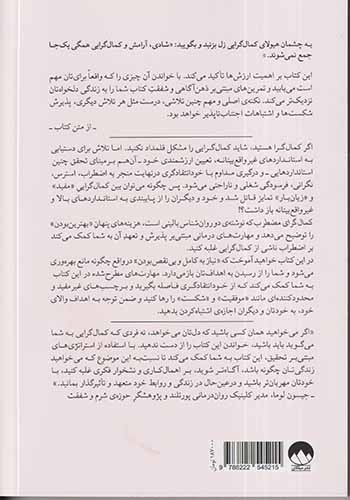 به چشمان هیولای کمال‌گرایی زل بزنید و بگویید: «شادی، آرامش و کمال‌گرایی همگی یک‌جا
جمع نمی‌شوند.»
این کتاب بر اهمیت ارزش‌ها تأکید می‌کند. با خواندن آن چیزی را که واقعاً برای‌تان مهم
است می‌یابید و تمرین‌های مبتنی بر ذهن‌آگاهی و شفقت کتاب شما را به زندگی دلخواه‌تان
نزدیک‌تر می‌کند. نکته‌ی اصلی و مهم چنین تلاشی، درست مثل هر تلاش دیگری، پذیرش
شکست‌ها و اشتباهات اجتناب‌ناپذیر خواهد بود.
ـ از متن کتاب ـ
اگر کمال‌گرا هستید، شاید کمال‌گرایی را مشکل قلمداد نکنید. اما تلاش برای دستیابی
به استانداردهای غیرواقع‌بینانه، تعیین ارزشمندی خود ـ آن‌هم بر مبنای تحقق چنین
استانداردهایی ـ و درگیری مداوم با خودانتقادگری درنهایت منجر به اضطراب، استرس،
نگرانی، فرمودگی شغلی و ناراحتی می‌شود. پس چگونه می‌توان بین کمال‌گرایی «مفید»
و «زیان‌بار» تمایز قائل شد و خود و دیگران را از پایبندی به استانداردهای بالا و
غیرواقع‌بینانه باز داشت؟!
کمال‌گرای مضطرب که نوشته‌ی دو روان‌شناس بالینی است، هزینه‌های پنهان «بهترین‌بودن»
را توضیح می‌دهد و مهارت‌های درمانی مبتنی بر پذیرش و تعهد آن به شما کمک می‌کند
بر اضطراب ناشی از کمال‌گرایی غلبه کنید.
در این کتاب خواهید آموخت که «نیاز به کامل و بی‌نقص‌بودن» در واقع چگونه مانع بهره‌وری
می‌شود و شما را از رسیدن به اهداف‌تان بازمی‌دارد. مهارت‌های مطرح‌شده در این کتاب
به شما کمک می‌کند که از خودانتقادگری فاصله بگیرید و برچسب‌های غیرمفید و
محدودکننده‌ای مانند «موفقیت» و «شکست» را رها کنید و ضمن توجه به اهداف والای
خود، به خودتان و دیگران اجازه‌ی اشتباه‌کردن بدهید.
«اگر می‌خواهید همان کسی باشید که دل‌تان می‌خواهد، نه فردی که کمال‌گرایی به شما
می‌گوید باید باشید، خواندن این کتاب را از دست ندهید. با استفاده از استراتژی‌های
مبتنی بر تحقیق، این کتاب به شما کمک می‌کند تا نسبت‌به این موضوع که می‌خواهید
زندگی‌تان چگونه باشد، آگاه‌تر شوید، بر اهمال‌کاری و نشخوار فکری غلبه کنید، با
خودتان مهربان‌تر باشید و درعین‌حال در زندگی و روابط خود متعهد و تأثیرگذار بمانید.»
ـ جیسون لوما، مدیر کلینیک روان‌درمانی پورتلند و پژوهشگر حوزه‌ی شرم و شفقت
9 786222 545215